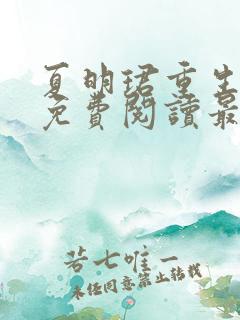 夏明珺重生
免費閱讀最
若七唯一
未经同意禁止转载